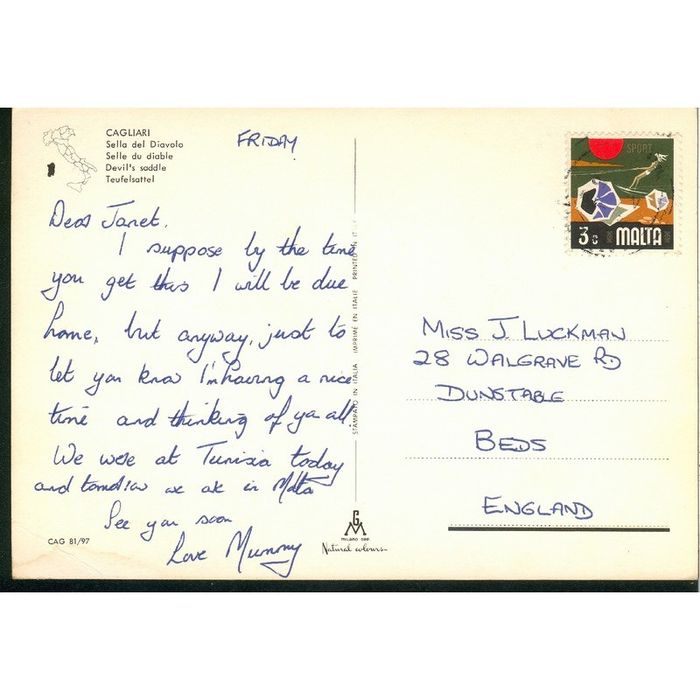 CAGLIARI
Sella del Diavolo
Selle du diable
Devil's saddle
Teufelsattel
FRIDAY
Dear Janet.
I suppose by the time
you get this I will be due
home, but anyway, just to
let you know I'm having a nice
time and thinking of you all.
We were at Tunisia today
and tomorrow we are in Malta
See you soon
Love Mummy
CAG 81/97
STAMPATO IN ITALIA IMPRIMÉ EN ITALIE PRINTED IN
MILANO
Natural colours
SPORT
3c MALTA
MISS J. LUCKMAN
28 WALGRAVE RD
DUNSTABLE
BEDS
ENGLAND